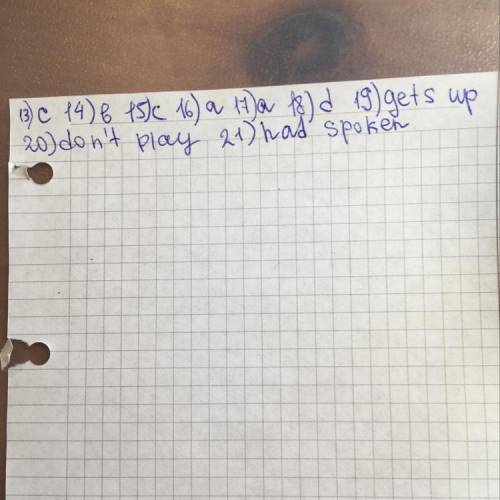 13) c 14) b 15) c 16) a 17) a 18) d 19) gets up
20) don't play 21) had spoken